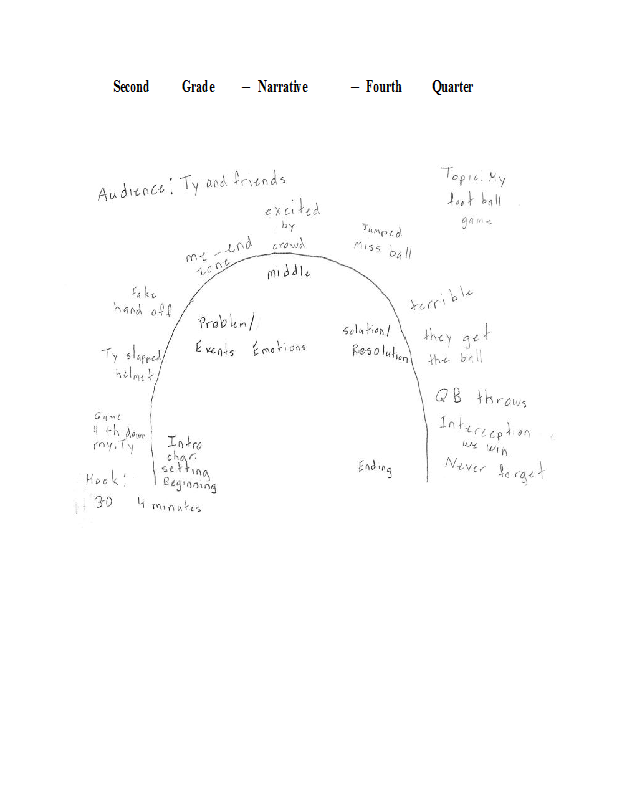 Second Grade – Narrative – Fourth Quarter
Audience: Ty and friends
Topic: My
foot ball
game
excited
by
crowd
me - end
zone
Jumped
miss ball
middle
fake
hand off
terrible
Problem/
Events Emotions
Solution/
Resolution
they get
the ball
Ty slapped
helmet
QB throws
Game
4th down
my, Ty
Interception
we win
Intro
char.
setting
Beginning
Ending
Never forget
Hook:
30 4 minutes